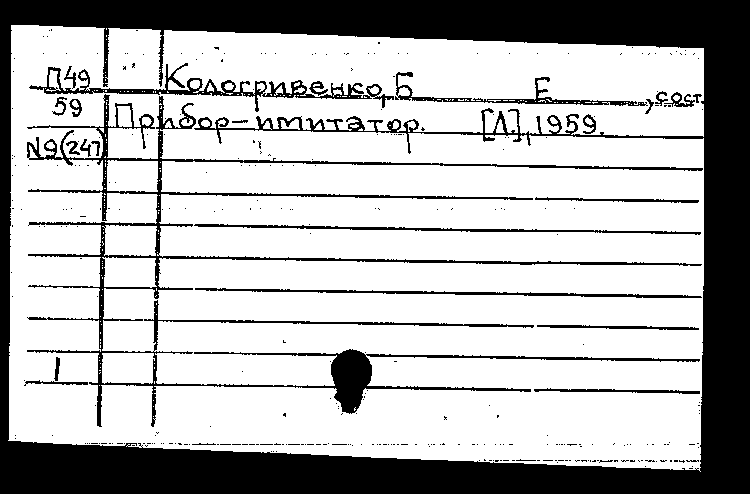 П49 Кологривенко, Б Е , сост.
59 Прибор-имитатор. [Л.], 1959.
N9(247)
1